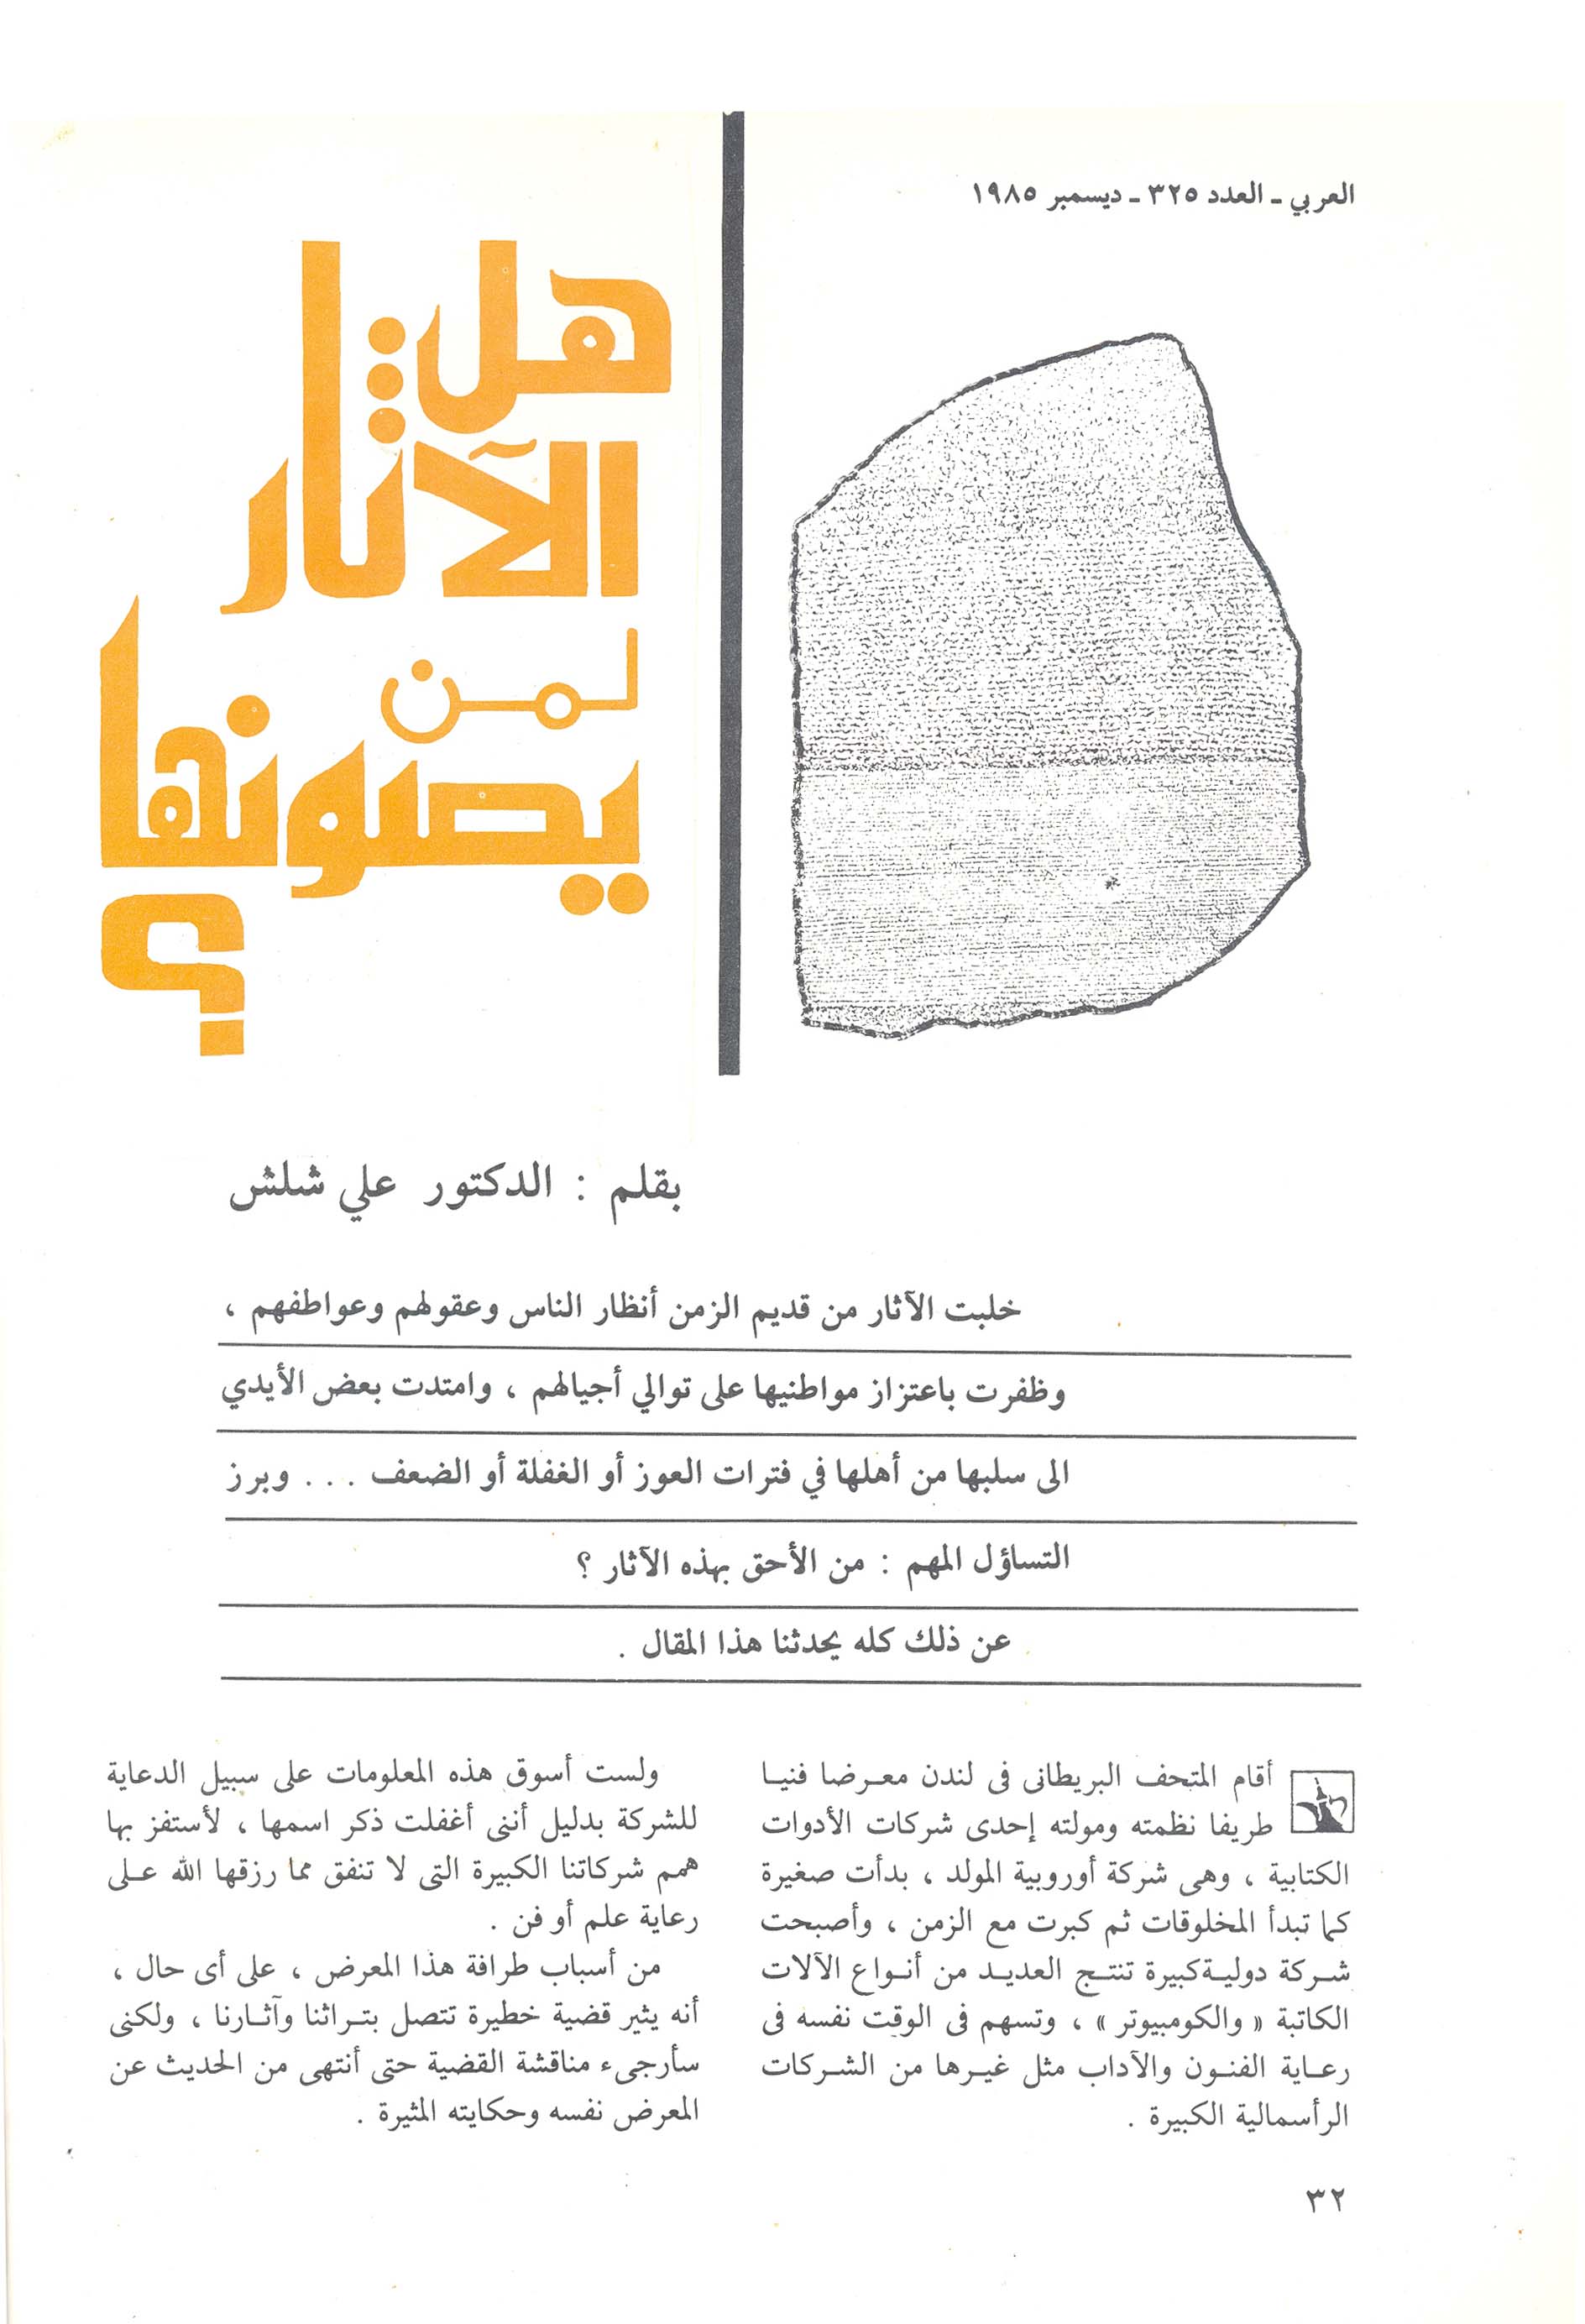 العربي - العدد ٣٢٥ - ديسمبر ١٩٨٥
هل
الآثار
لمن
يصونها
؟
بقلم : الدكتور علي شلش
خلبت الآثار من قديم الزمن أنظار الناس وعقولهم وعواطفهم ،
وظفرت باعتزاز مواطنيها على توالي أجيالهم ، وامتدت بعض الأيدي
الى سلبها من أهلها في فترات العوز أو الغفلة أو الضعف ... وبرز
التساؤل المهم : من الأحق بهذه الآثار ؟
عن ذلك كله يحدثنا هذا المقال .
أقام المتحف البريطانى فى لندن معرضا فنيا
طريفا نظمته ومولته إحدى شركات الأدوات
الكتابية ، وهى شركة أوروبية المولد ، بدأت صغيرة
كما تبدأ المخلوقات ثم كبرت مع الزمن ، وأصبحت
شركة دولية كبيرة تنتج العديد من أنواع الآلات
الكاتبة « والكومبيوتر » ، وتسهم فى الوقت نفسه فى
رعاية الفنون والآداب مثل غيرها من الشركات
الرأسمالية الكبيرة .
ولست أسوق هذه المعلومات على سبيل الدعاية
للشركة بدليل أننى أغفلت ذكر اسمها ، لأستفز بها
همم شركاتنا الكبيرة التى لا تنفق مما رزقها الله على
رعاية علم أو فن .
من أسباب طرافة هذا المعرض ، على أى حال ،
أنه يثير قضية خطيرة تتصل بتراثنا وآثارنا ، ولكنى
سأرجىء مناقشة القضية حتى أنتهى من الحديث عن
المعرض نفسه وحكايته المثيرة .
٣٢